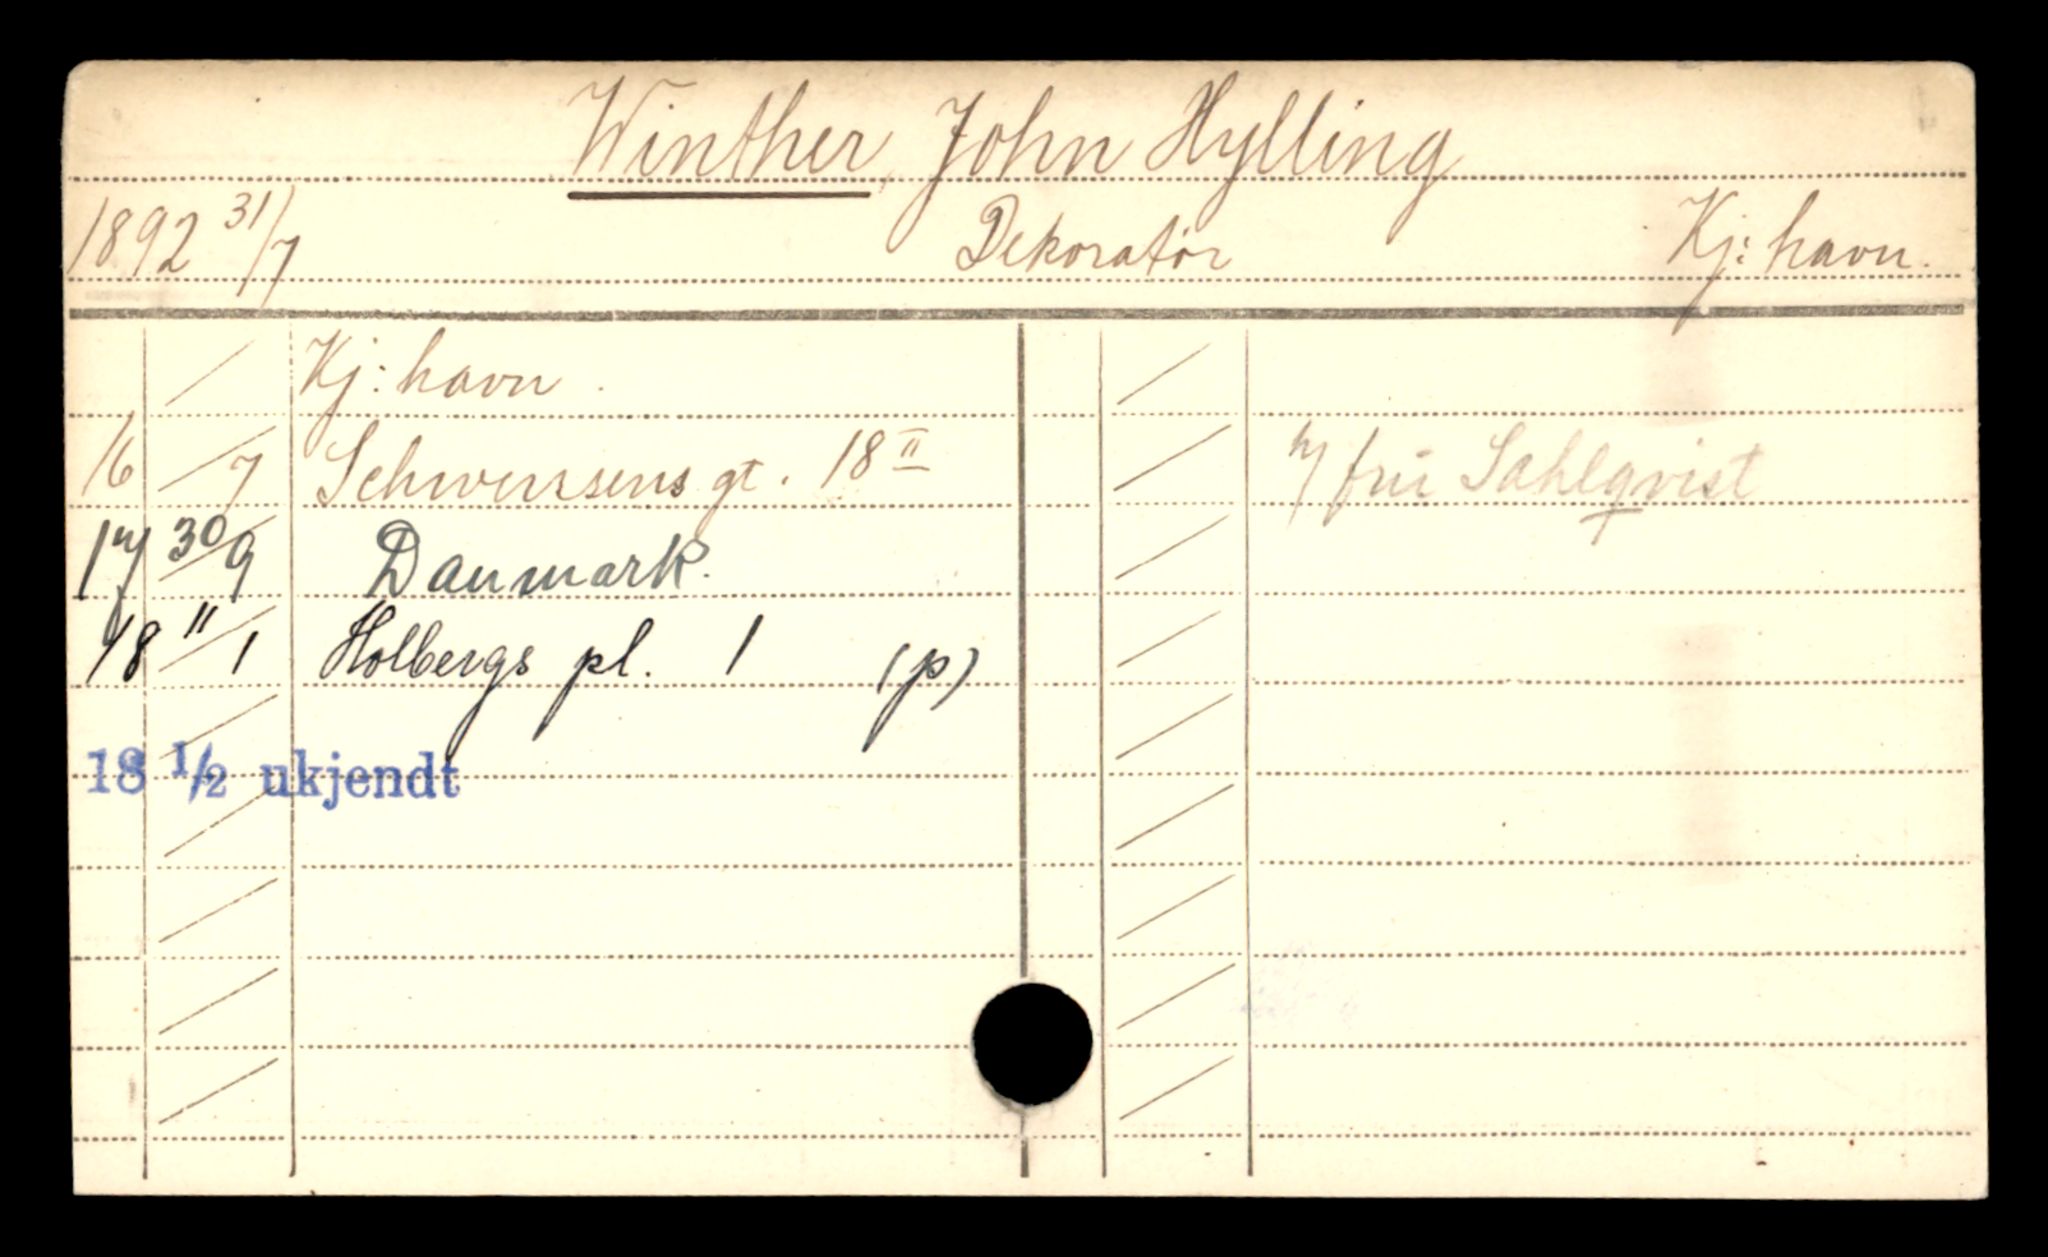 Winther, John Hylling
1892 31/7 Dekoratør Kj:havn.
Kj:havn.
16 /7 Schwenssens gt. 18 II
h/ fru Sahlqvist
17 30/9 Danmark.
18 11/1 Holbergs pl. 1 (p)
18 1/2 ukjendt